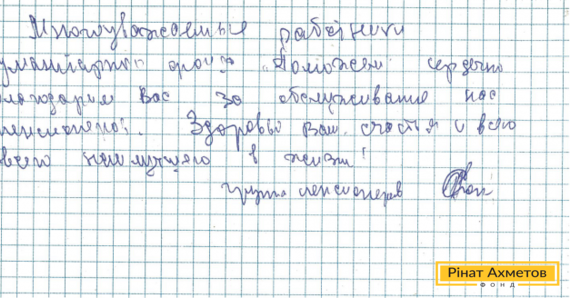 Многоуважаемые работники
уманітарного фонда "Поможем" сердечно
лагодарим Вас за обслуживание нас
пенсионеров. Здоровья Вам, счастья и всего
всего наилучшего в жизни!
группа пенсионеров
Рінат Ахметов
ФОНД